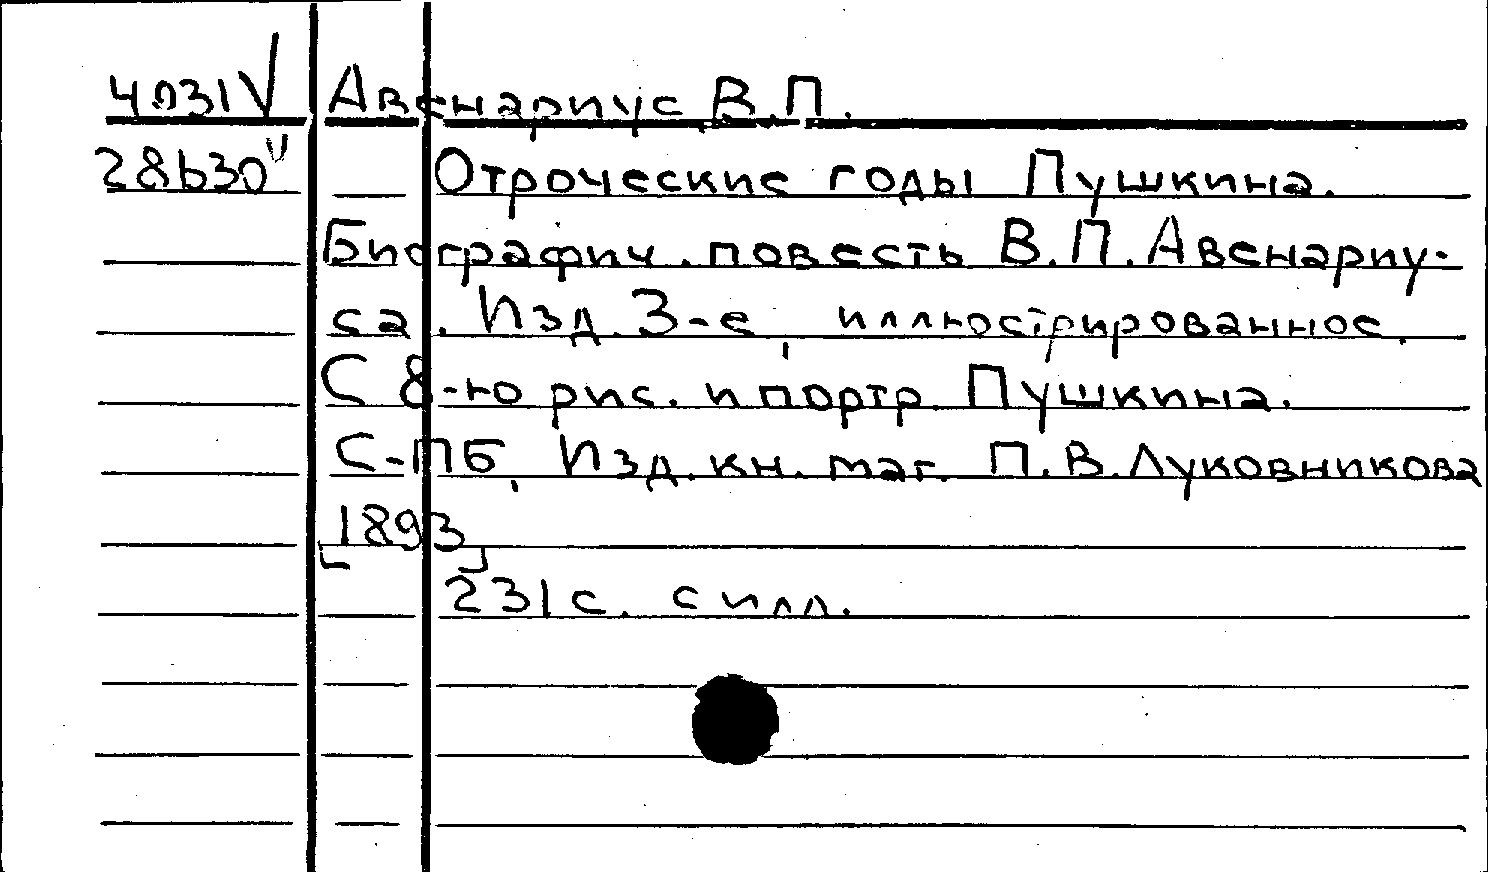 4031V Авенариус В.П.
28630 Отроческие годы Пушкина.
Биографич. повесть В.П. Авенариу-
са. Изд. 3-е, иллюстрированное.
С 8-ю рис. и портр. Пушкина.
С-ПБ, Изд. кн. маг. П.В. Луковникова
[1893]
231 с. с илл.